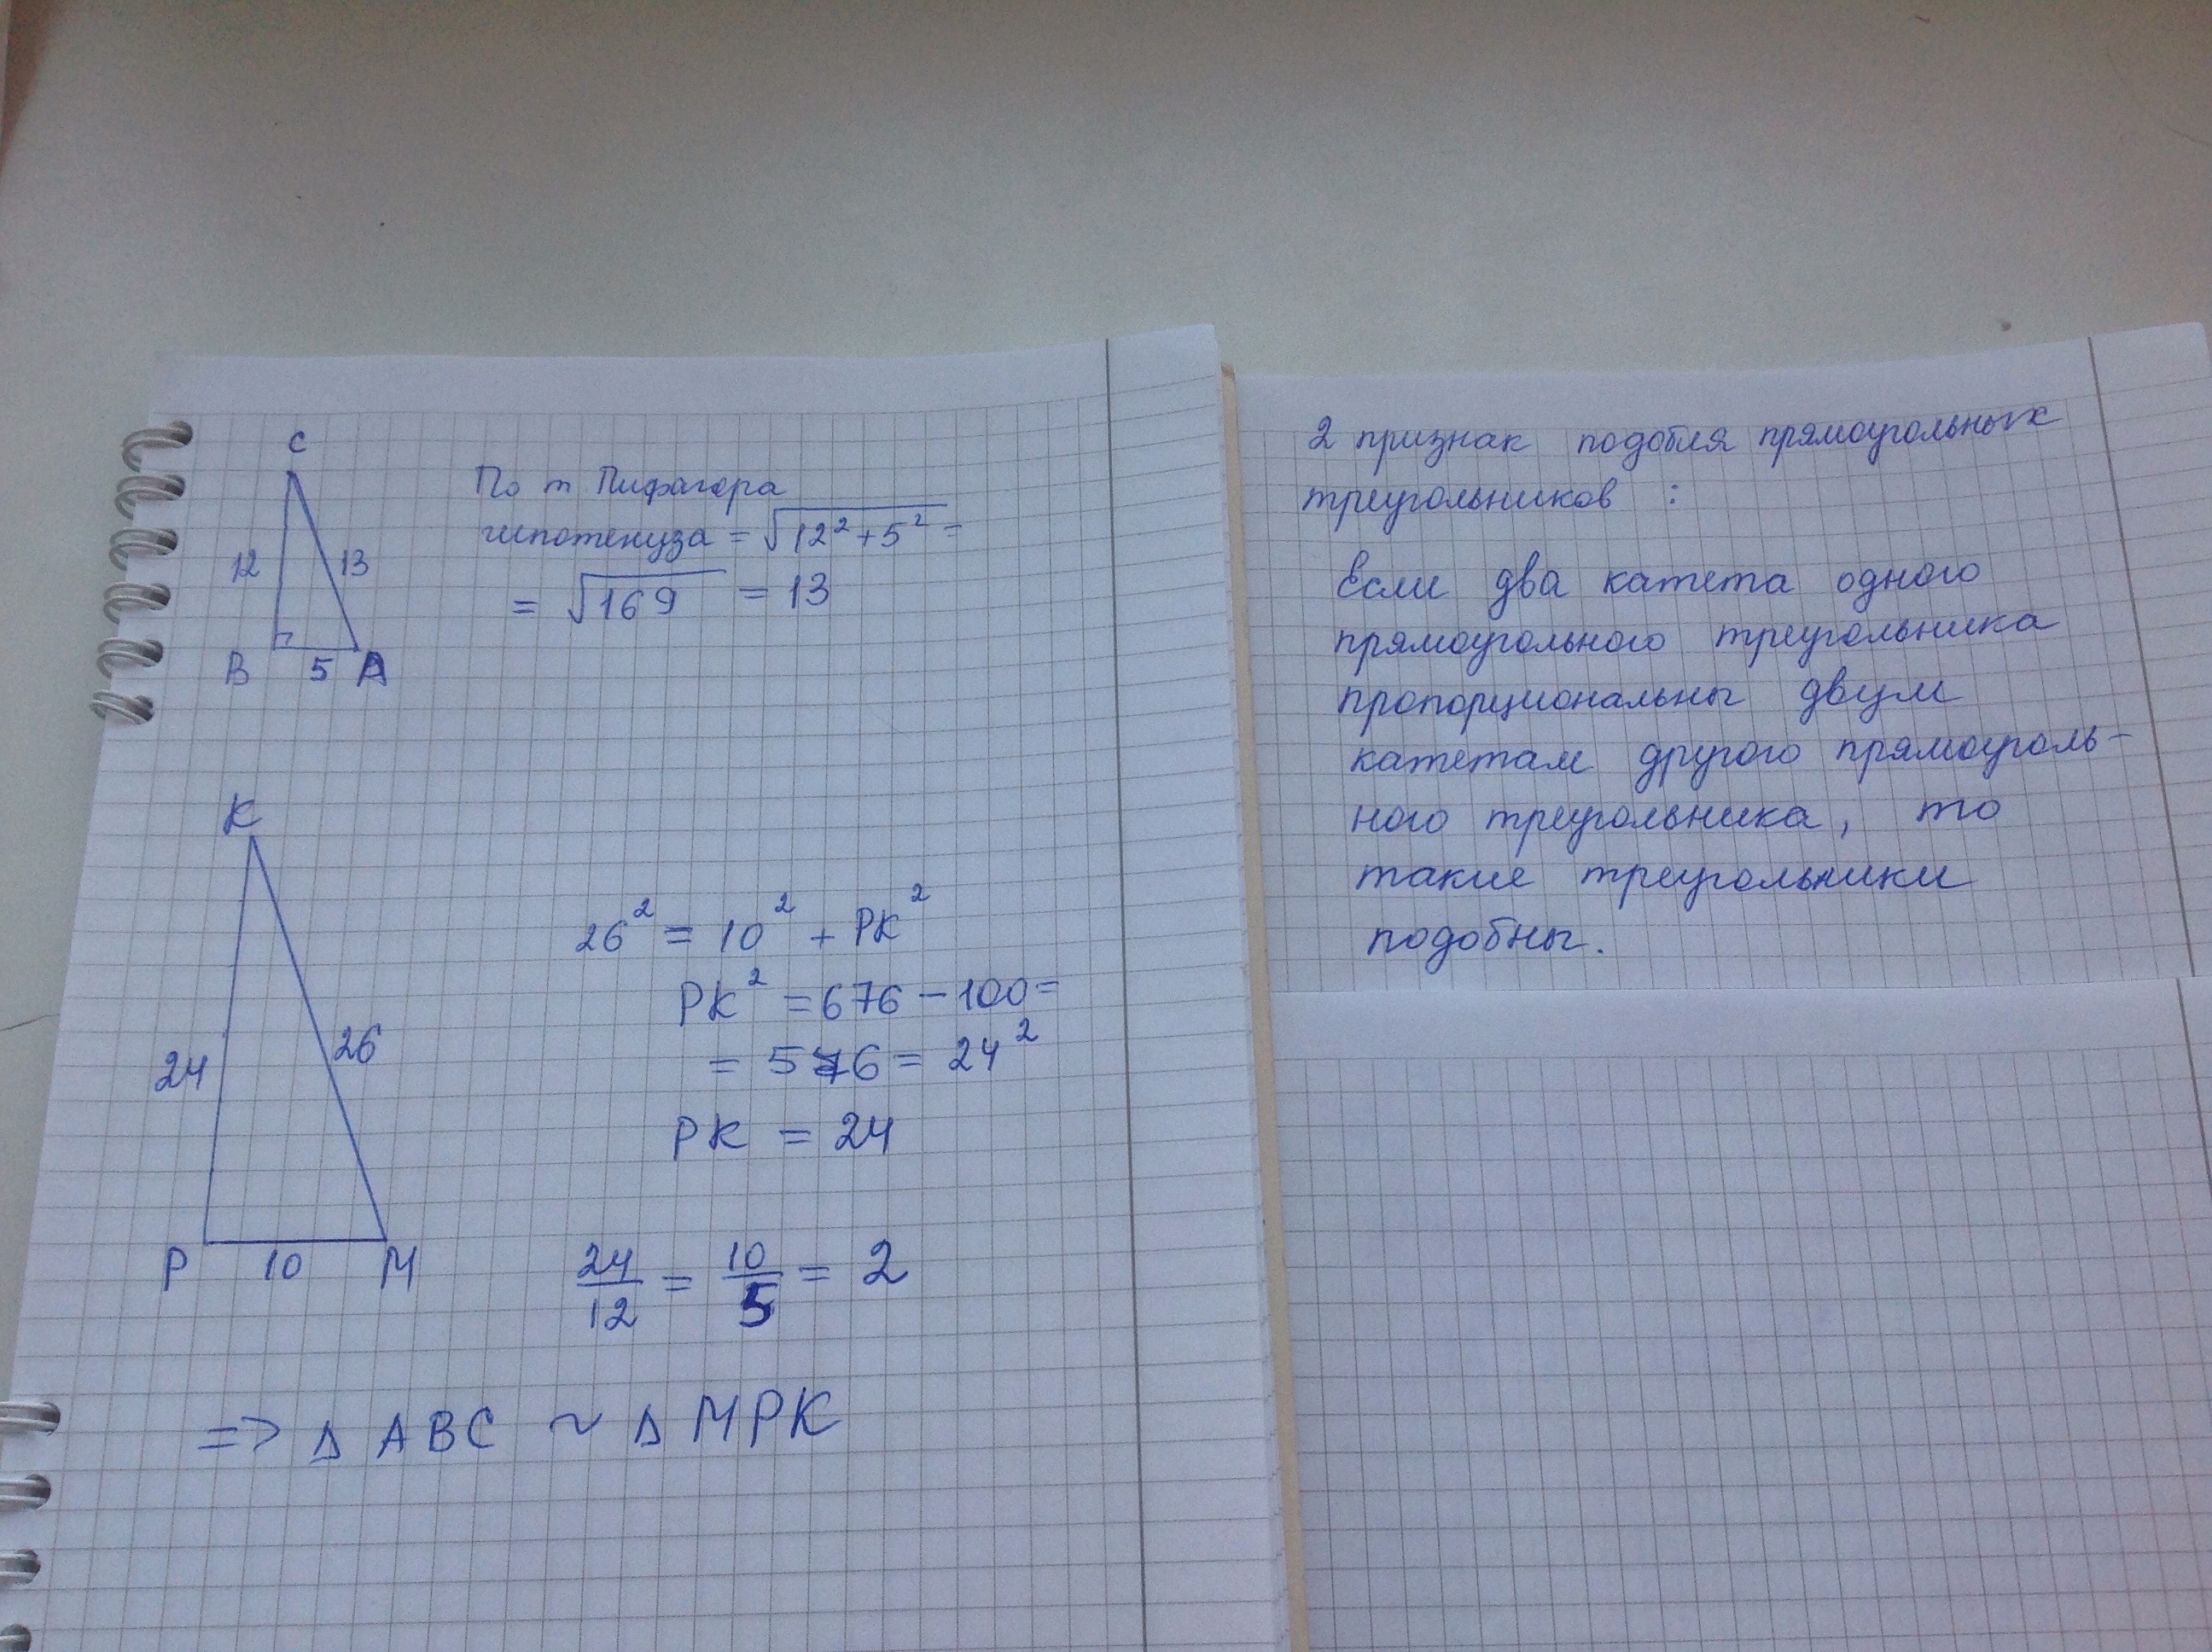 C
По т Пифагора
гипотенуза = √12² + 5² =
12 13
= √169 = 13
B 5 A
K
26² = 10² + PK²
PK² = 676 - 100 =
24 26
= 576 = 24²
PK = 24
P 10 M
24/12 = 10/5 = 2
=> Δ ABC ~ Δ MPK
2 признак подобля прямоугольных
треугольников :
Если два катета одного
прямоугольного треугольника
пропорциональны двум
катетам другого прямоуголь-
ного треугольника, то
такие треугольники
подобны.